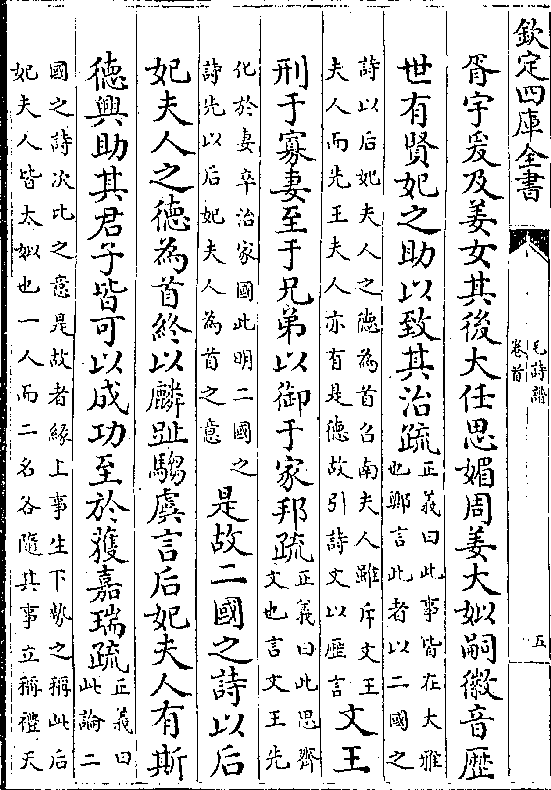 欽定四庫全書
毛詩譜
卷首
五
胥宇爰及姜女其後大任思媚周姜大姒嗣徽音歴
世有賢妃之助以致其治疏
正義曰此事皆在大雅
也鄭言此者以二國之
詩以后妃夫人之德為首召南夫人雖斥文王
夫人而先王夫人亦有是德故引詩文以歴言
文王
刑于寡妻至于兄弟以御于家邦疏
正義曰此思齊
文也言文王先
化於妻卒治家國此明二國之
詩先以后妃夫人為首之意
是故二國之詩以后
妃夫人之德為首終以麟趾騶虞言后妃夫人有斯
德興助其君子皆可以成功至於獲嘉瑞疏
正義曰
此論二
國之詩次比之意是故者緣上事生下勢之稱此后
妃夫人皆太姒也一人而二名各隨其事立稱禮天